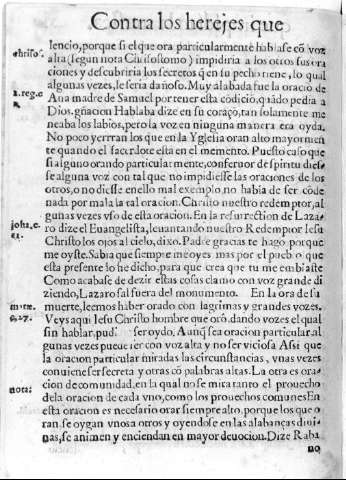 Contra los herejes que
lencio, porque si el que ora particularmente hablase cõ voz
chriso.
alta (segun nota Chrisostomo) impidiria a los otros sus ora
ciones y descubriria los secretos q̃ en su pecho tiene, lo qual
algunas vezes, le seria dañoso. Muy alabada fue la oració de
1. reg. c
Ana madre de Samuel por tener esta códició, quãdo pedia a
Dios generació Hablaba dize en su coraçõ, tan solamente me
neaba los labios, pero la voz en ninguna manera era oyda.
No poco yerran los que en la Yglesia oran alto mayormen
te quando el sacerdote esta en el memento. Puesto caso que
si alguno orando particularmente, con feruor de spiritu dies
se alguna voz con tal que no impidiesse las oraciones de los
otros, o no diesse en ello mal exemplo, no habia de ser cõde
nada por mala la tal oracion. Christo nuestro redemptor, al
gunas vezes vso de esta oracion. En la resurrection de Laza
joha. c.
ro dize el Euangelista, leuantando nuestro Redemptor Iesu
11.
Christo los ojos al cielo, dixo. Padre gracias te hago porque
me oyste. Sabia que siempre me oyes mas por el pueblo que
esta presente lo he dicho, para que crea que tu me embiaste
Como acabase de dezir estas cosas clamo con voz grande di
ziendo, Lazaro sal fuera del monumento. En la ora de su
matt.
muerte, leemos haber orado con lagrimas y grandes vozes.
c. 27.
Veys aqui Iesu Christo hombre que orò dando vozes el qual
sin hablar, pud ser oydo, Aunq̃ sea oracion particular, al
gunas vezes puede ser con voz alta y no ser viciosa Assi que
la oracion particular miradas las circunstancias, vnas vezes
conuiene ser secreta y otras cõ palabras altas. La otra es ora-
cion de comunidad, en la qual no se mira tanto el prouecho
nota:
de la oracion de cada vno, como los prouechos comunes En
esta oracion es necesario orar siempre alto, porque los que o
ran se oygan vnos a otros y oyendose en las alabanças diui-
nas, se animen y enciendan en mayor deuocion. Dize Raba
no